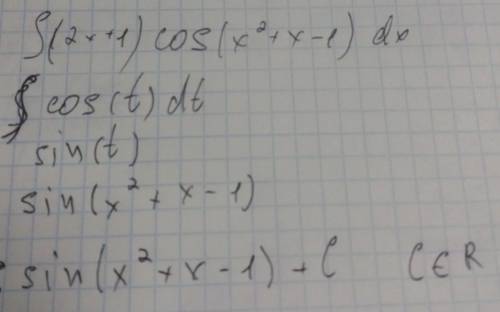 ∫(2x+1) cos(x²+x-1) dx
∫ cos(t) dt
sin(t)
sin(x²+x-1)
sin(x²+x-1)+C C∈R